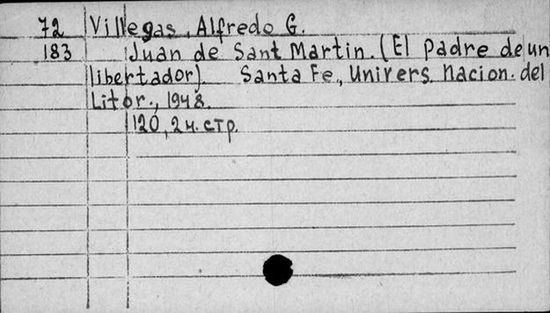 72 Villegas, Alfredo G.
183 Juan de Sant Martin. (El padre de un
libertador). Santa Fe, Univers. nacion. del
Litor., 1948.
120, 2 н. стр.